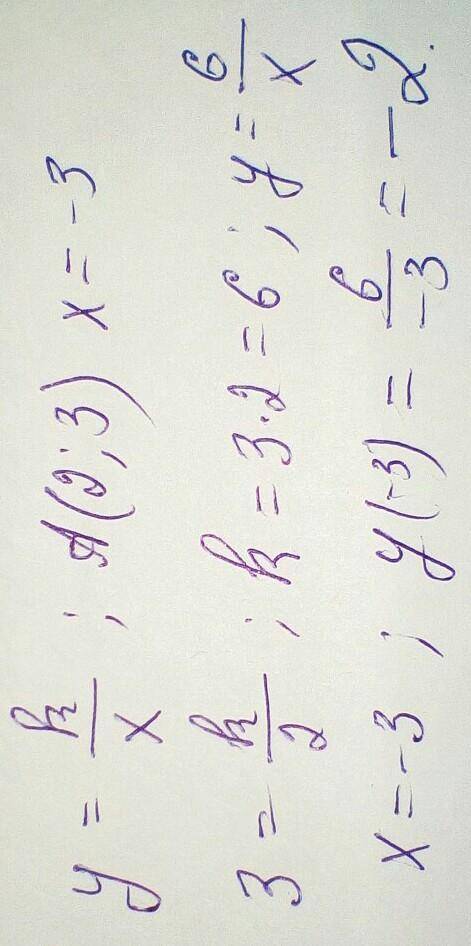 y = k/x ; A(2;3) x = -3
3 = k/2 ; k = 3·2 = 6 ; y = 6/x
x = -3 ; y(-3) = 6/-3 = -2.